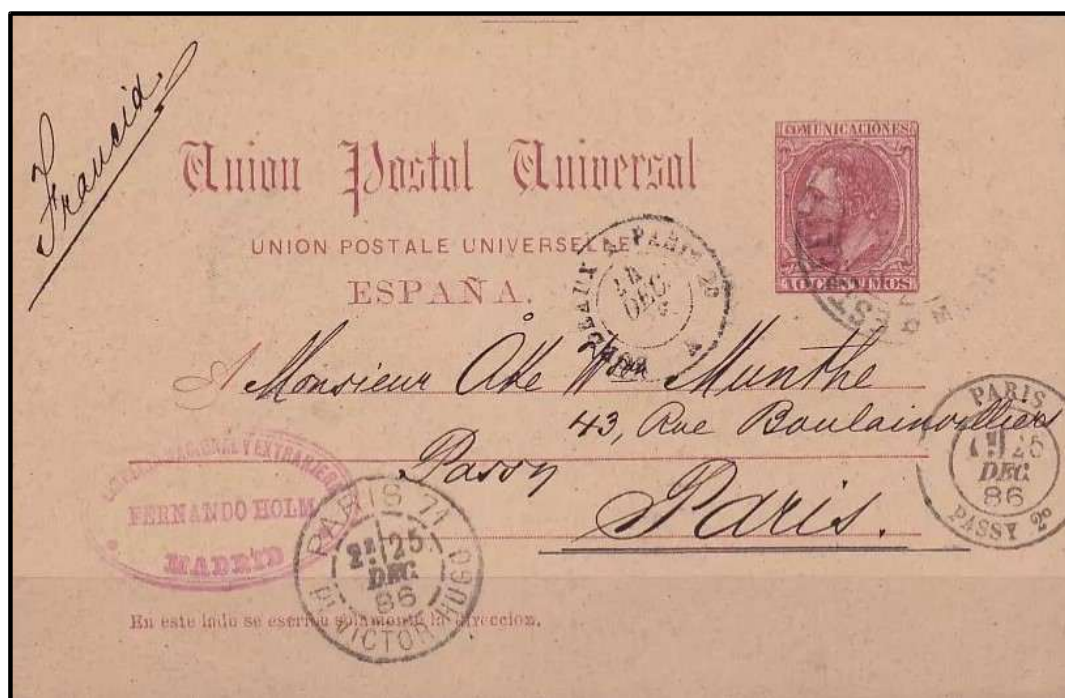 Francia
COMUNICACIONES
Union Postal Universal
UNION POSTALE UNIVERSELLE
ESPAÑA.
10 CENTIMOS
A PARIS 2º
DEC
A Monsieur Åke W:son Munthe
43, Rue Boulainvilliers
Passy
Paris.
PARIS
25
DEC
86
PASSY 2º
NACIONAL Y EXTRANJERA
FERNANDO HOLM
MADRID
PARIS 71
2E 25
DEC
86
PL VICTOR HUGO
En este lado se escribe solamente la direccion.